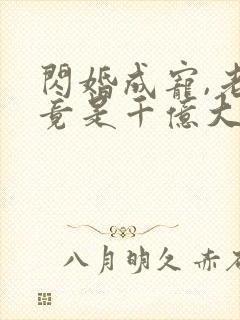 閃婚成寵,老
竟是千億大
八月明久 赤石